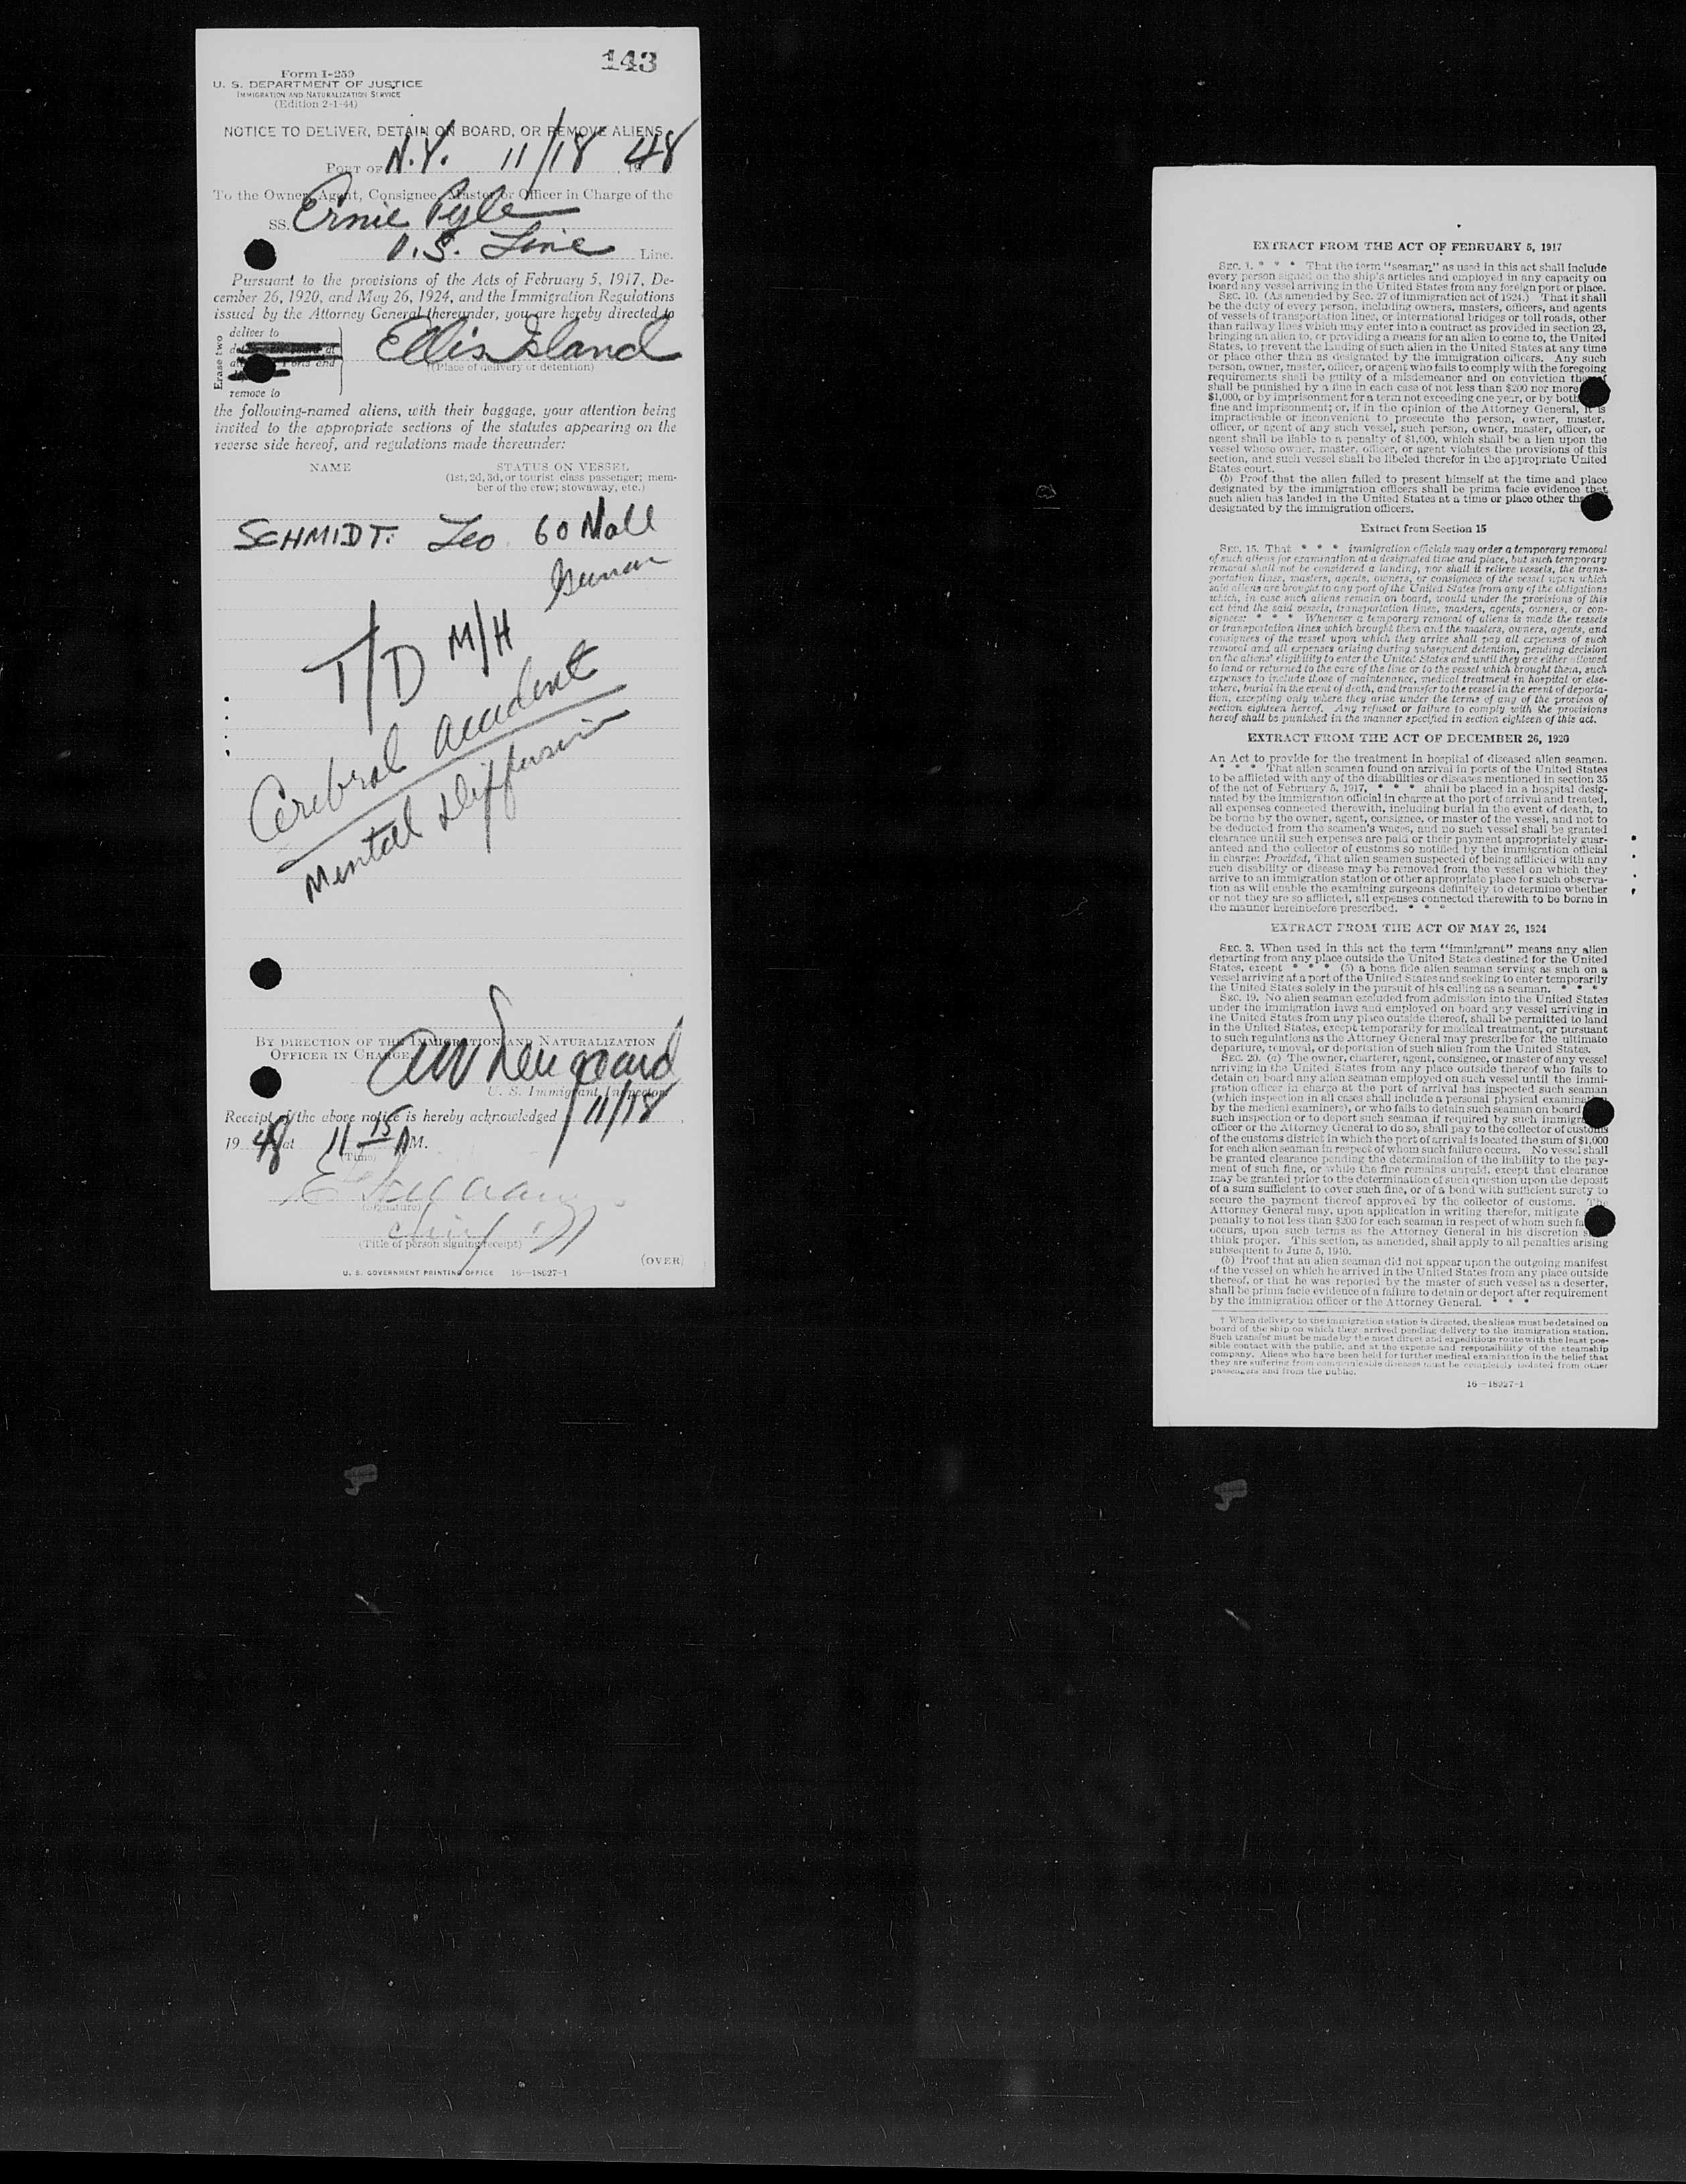 143
Form I-259
U. S. DEPARTMENT OF JUSTICE
IMMIGRATION AND NATURALIZATION SERVICE
(Edition 2-1-44)
NOTICE TO DELIVER, DETAIN ON BOARD, OR REMOVE ALIENS
PORT OF N.Y. 11/18, 1948
To the Owner, Agent, Consignee, Master, or Officer in Charge of the
SS. Ernie Pyle
U.S. Line Line.
Pursuant to the provisions of the Acts of February 5, 1917, De-
cember 26, 1920, and May 26, 1924, and the Immigration Regulations
issued by the Attorney General thereunder, you are hereby directed to
Erase two
deliver to
at
Ports and
remove to
Ellis Island
(Place of delivery or detention)
the following-named aliens, with their baggage, your attention being
invited to the appropriate sections of the statutes appearing on the
reverse side hereof, and regulations made thereunder:
NAME STATUS ON VESSEL
(1st, 2d, 3d, or tourist class passenger; mem-
ber of the crew; stowaway, etc.)
SCHMIDT. Leo 60 Male
German
T/D M/H
Cerebral accident
Mental
BY DIRECTION OF THE IMMIGRATION AND NATURALIZATION
OFFICER IN CHARGE.
U. S. Immigrant Inspector.
Receipt of the above notice is hereby acknowledged 11/18,
1948 at 11 15 AM.
(Time)
(Signature)
(Title of person signing receipt)
(OVER)
U. S. GOVERNMENT PRINTING OFFICE 16—18027-1
EXTRACT FROM THE ACT OF FEBRUARY 5, 1917
SEC. 1. * * * That the term "seaman" as used in this act shall include
every person signed on the ship's articles and employed in any capacity on
board any vessel arriving in the United States from any foreign port or place.
SEC. 10. (As amended by Sec. 27 of immigration act of 1924.) That it shall
be the duty of every person, including owners, masters, officers, and agents
of vessels of transportation lines, or international bridges or toll roads, other
than railway lines which may enter into a contract as provided in section 23,
bringing an alien to, or providing a means for an alien to come to, the United
States, to prevent the landing of such alien in the United States at any time
or place other than as designated by the immigration officers. Any such
person, owner, master, officer, or agent who fails to comply with the foregoing
requirements shall be guilty of a misdemeanor and on conviction thereof
shall be punished by a fine in each case of not less than $200 nor more
$1,000, or by imprisonment for a term not exceeding one year, or by both
fine and imprisonment; or, if in the opinion of the Attorney General, it is
impracticable or inconvenient to prosecute the person, owner, master,
officer, or agent of any such vessel, such person, owner, master, officer, or
agent shall be liable to a penalty of $1,000, which shall be a lien upon the
vessel whose owner, master, officer, or agent violates the provisions of this
section, and such vessel shall be libeled therefor in the appropriate United
States court.
(b) Proof that the alien failed to present himself at the time and place
designated by the immigration officers shall be prima facie evidence that
such alien has landed in the United States at a time or place other
designated by the immigration officers.
Extract from Section 15
SEC. 15. That * * * immigration officials may order a temporary removal
of such aliens for examination at a designated time and place, but such temporary
removal shall not be considered a landing, nor shall it relieve vessels, the trans-
portation lines, masters, agents, owners, or consignees of the vessel upon which
said aliens are brought to any port of the United States from any of the obligations
which, in case such aliens remain on board, would under the provisions of this
act bind the said vessels, transportation lines, masters, agents, owners, or con-
signees: * * * Whenever a temporary removal of aliens is made the vessels
or transportation lines which brought them and the masters, owners, agents, and
consignees of the vessel upon which they arrive shall pay all expenses of such
removal and all expenses arising during subsequent detention, pending decision
on the aliens' eligibility to enter the United States and until they are either allowed
to land or returned to the care of the line or to the vessel which brought them, such
expenses to include those of maintenance, medical treatment in hospital or else-
where, burial in the event of death, and transfer to the vessel in the event of deporta-
tion, excepting only where they arise under the terms of any of the provisos of
section eighteen hereof. Any refusal or failure to comply with the provisions
hereof shall be punished in the manner specified in section eighteen of this act.
EXTRACT FROM THE ACT OF DECEMBER 26, 1920
An Act to provide for the treatment in hospital of diseased alien seamen.
* * * That alien seamen found on arrival in ports of the United States
to be afflicted with any of the disabilities or diseases mentioned in section 35
of the act of February 5, 1917, * * * shall be placed in a hospital desig-
nated by the immigration official in charge at the port of arrival and treated,
all expenses connected therewith, including burial in the event of death, to
be borne by the owner, agent, consignee, or master of the vessel, and not to
be deducted from the seamen's wages, and no such vessel shall be granted
clearance until such expenses are paid or their payment appropriately guar-
anteed and the collector of customs so notified by the immigration official
in charge: Provided, That alien seamen suspected of being afflicted with any
such disability or disease may be removed from the vessel on which they
arrive to an immigration station or other appropriate place for such observa-
tion as will enable the examining surgeons definitely to determine whether
or not they are so afflicted, all expenses connected therewith to be borne in
the manner hereinbefore prescribed. * * *
EXTRACT FROM THE ACT OF MAY 26, 1924
SEC. 3. When used in this act the term "immigrant" means any alien
departing from any place outside the United States destined for the United
States, except * * * (5) a bona fide alien seaman serving as such on a
vessel arriving at a port of the United States and seeking to enter temporarily
the United States solely in the pursuit of his calling as a seaman. * * *
SEC. 19. No alien seaman excluded from admission into the United States
under the immigration laws and employed on board any vessel arriving in
the United States from any place outside thereof, shall be permitted to land
in the United States, except temporarily for medical treatment, or pursuant
to such regulations as the Attorney General may prescribe for the ultimate
departure, removal, or deportation of such alien from the United States.
SEC. 20. (a) The owner, charterer, agent, consignee, or master of any vessel
arriving in the United States from any place outside thereof who fails to
detain on board any alien seaman employed on such vessel until the immi-
gration officer in charge at the port of arrival has inspected such seaman
(which inspection in all cases shall include a personal physical examination
by the medical examiners), or who fails to detain such seaman on board
such inspection or to deport such seaman if required by such
officer or the Attorney General to do so, shall pay to the collector of customs
of the customs district in which the port of arrival is located the sum of $1,000
for each alien seaman in respect of whom such failure occurs. No vessel shall
be granted clearance pending the determination of the liability to the pay-
ment of such fine, or while the fine remains unpaid, except that clearance
may be granted prior to the determination of such question upon the deposit
of a sum sufficient to cover such fine, or of a bond with sufficient surety to
secure the payment thereof approved by the collector of customs. The
Attorney General may, upon application in writing therefor, mitigate
penalty to not less than $200 for each seaman in respect of whom such
occurs, upon such terms as the Attorney General in his discretion
think proper. This section, as amended, shall apply to all penalties arising
subsequent to June 5, 1940.
(b) Proof that an alien seaman did not appear upon the outgoing manifest
of the vessel on which he arrived in the United States from any place outside
thereof, or that he was reported by the master of such vessel as a deserter,
shall be prima facie evidence of a failure to detain or deport after requirement
by the immigration officer or the Attorney General. * * *
† When delivery to the immigration station is directed, the aliens must be detained on
board of the ship on which they arrived pending delivery to the immigration station.
Such transfer must be made by the most direct and expeditious route with the least pos-
sible contact with the public, and at the expense and responsibility of the steamship
company. Aliens who have been held for further medical examination in the belief that
they are suffering from communicable diseases must be completely isolated from other
passengers and from the public.
16—18027-1